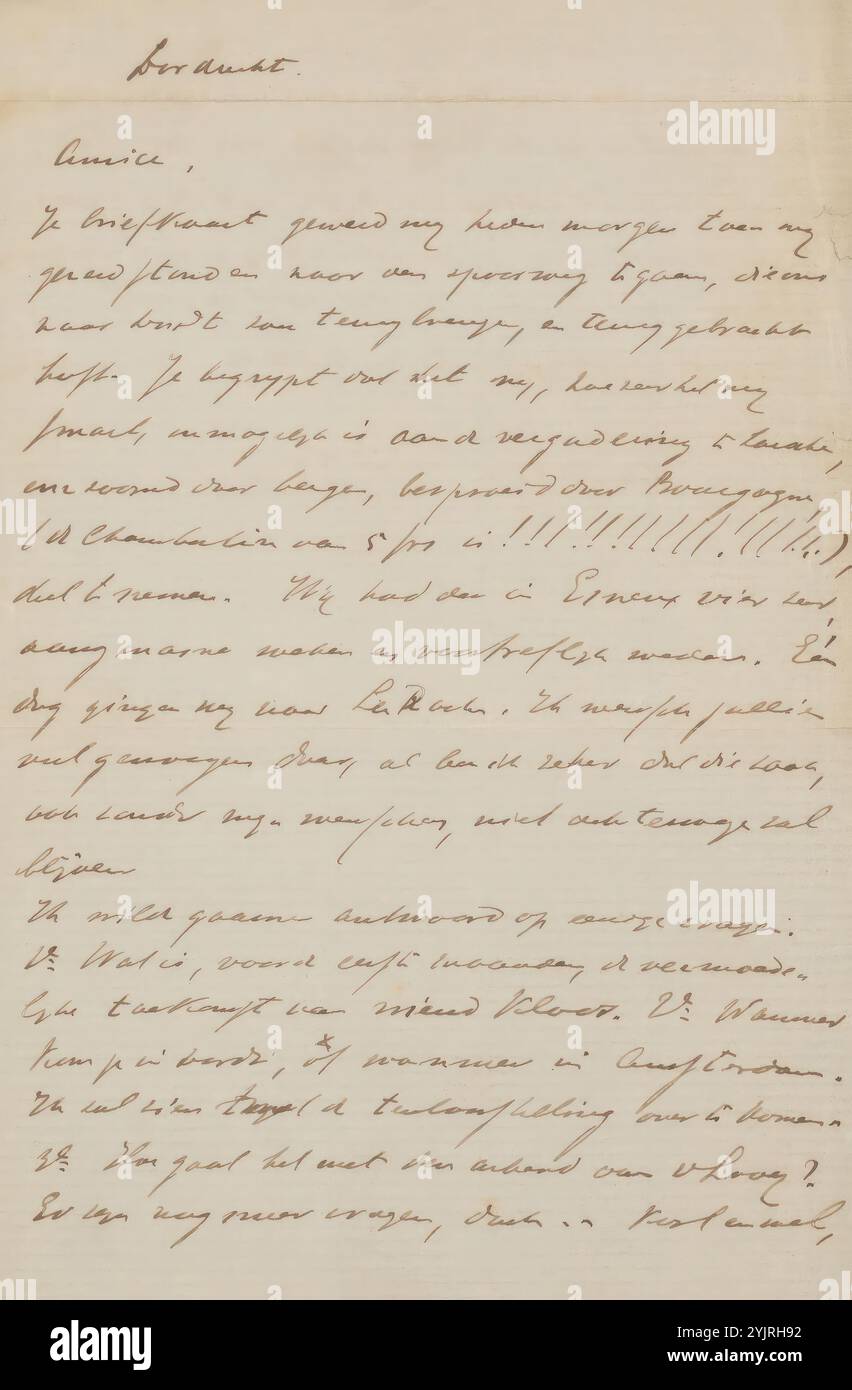 Dordrecht.
Amice,
Je briefkaart gewerd my heden morgen toen wy
gereed stonden naar den spoorweg te gaan, die ons
naar Dordt zou terugbrengen, en teruggebracht
heeft. Je begrypt dat het my, hoezeer het my
smart, onmogelyk is aan de vergadering te
door bergen, besproeid door Bourgogne
(de Chambertin van 5 frs is !!!!!!!!!!!!!!!!),
deel te nemen. Wy hadden in Esneux vier zeer
aangename weken en voortreflyk weder. Eén
dag gingen wy naar LaRoche. Ik wensch jullie
veel genoegen daar, al ben ik zeker dat die zaak,
ook zonder myn wenschen, niet achterwege zal
blyven
Ik wilde gaarne antwoord op eenige vragen.
1e. Wat is, voor de eerste maanden, de vermoede-
lyke toekomst van vriend Kloos. 2e. Wanneer
kom je in Dordt, of wanneer in Amsterdam.
Ik zal zien de tentoonstelling over te komen.
3e. Hoe gaat het met den arbeid van v Looy?
Er zyn nog meer vragen, doch .. Vertel me wel,
alamy
a
alamy
Image ID: 2YJRH92
www.alamy.com